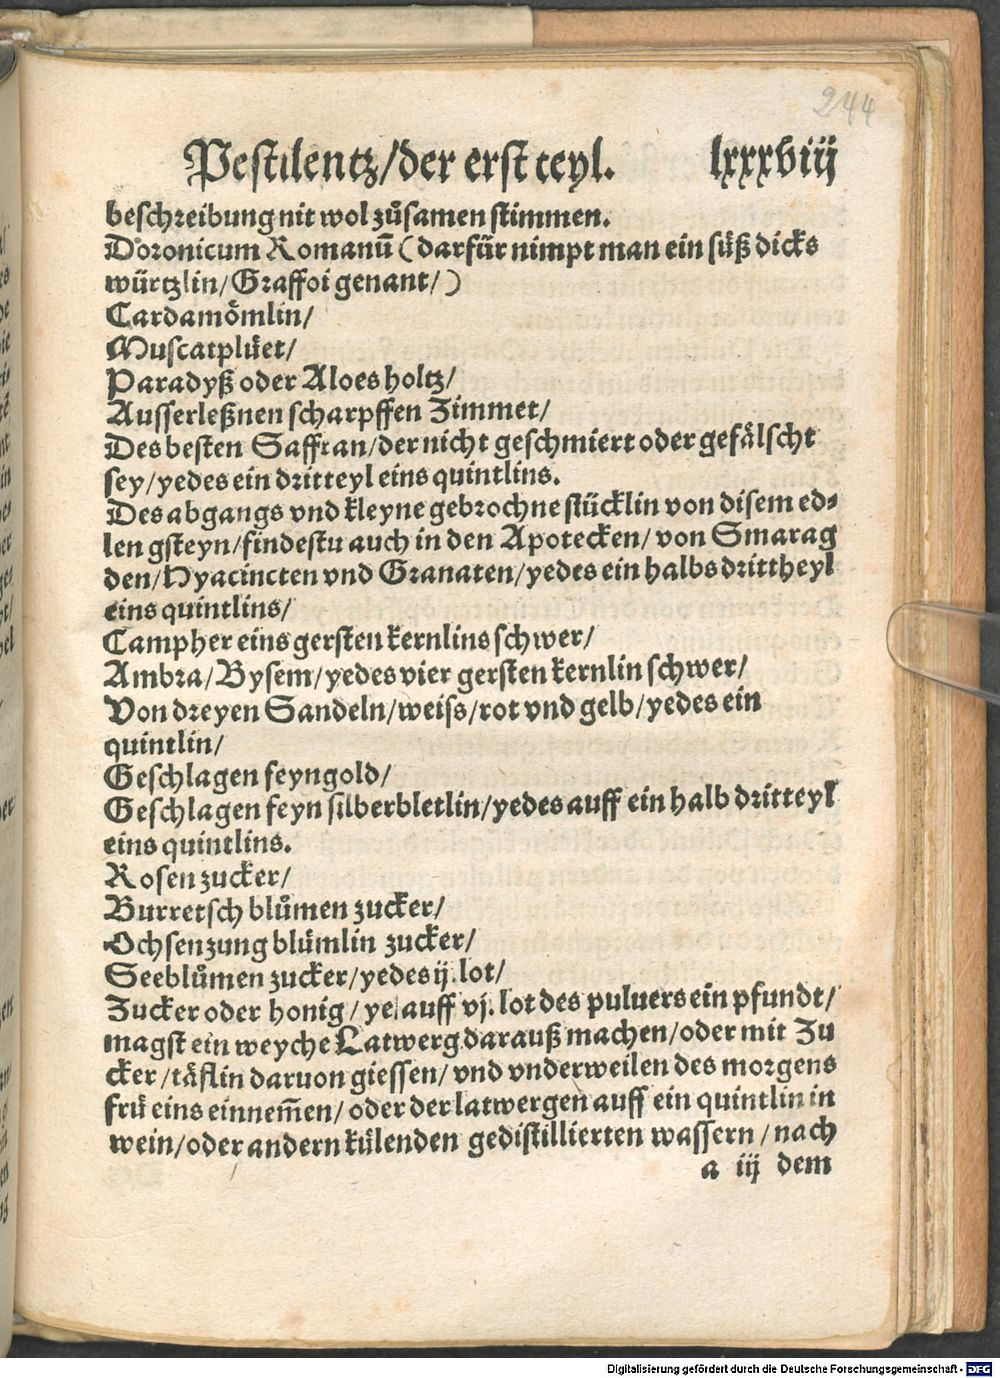 244
Pestilentz/der erst teyl. lxxxviij
beschreibung nit wol zůsamen stimmen.
Doronicum Romanū (darfür nimpt man ein süß dicks
würtzlin/Graffoi genant/)
Cardamömlin/
Muscatplüet/
Paradyß oder Aloes holtz/
Ausserleßnen scharpffen Zimmet/
Des besten Saffran/der nicht geschmiert oder gefälscht
sey/yedes ein dritteyl eins quintlins.
Des abgangs vnd kleyne gebrochne stücklin von disem ed⸗
len gsteyn/findestu auch in den Apotecken/von Smarag
den/Hyacincten vnd Granaten/yedes ein halbs drittheyl
eins quintlins/
Campher eins gersten kernlins schwer/
Ambra/Bysem/yedes vier gersten kernlin schwer/
Von dreyen Sandeln/weiss/rot vnd gelb/yedes ein
quintlin/
Geschlagen feyngold/
Geschlagen feyn silberbletlin/yedes auff ein halb dritteyl
eins quintlins.
Rosen zucker/
Burretsch blůmen zucker/
Ochsenzung blümlin zucker/
Seeblůmen zucker/yedes ij.lot/
Zucker oder honig/ye auff vj.lot des puluers ein pfundt/
magst ein weyche Latwerg darauß machen/oder mit Zu
cker/täflin daruon giessen/vnd vnderweilen des morgens
frü eins einnem̄en/oder der latwergen auff ein quintlin in
wein/oder andern külenden gedistillierten wassern/nach
a iij dem
Digitalisierung gefördert durch die Deutsche Forschungsgemeinschaft - DFG